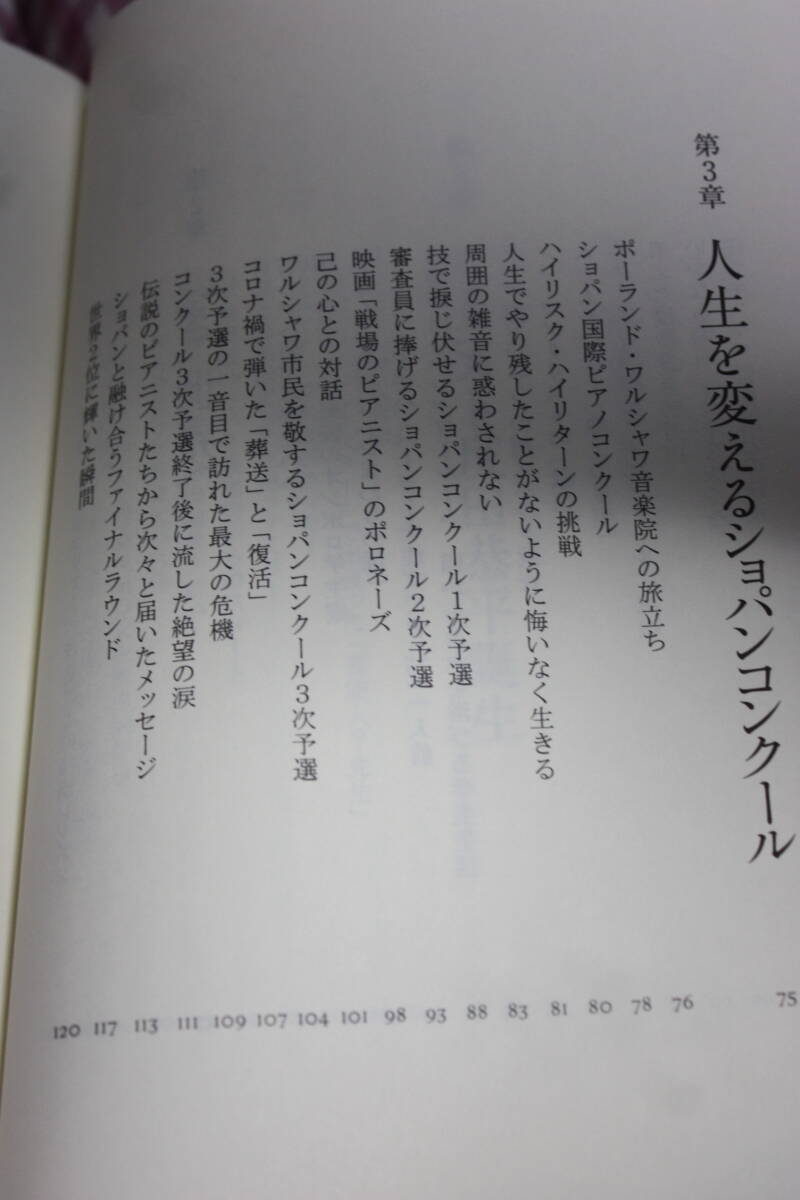 第3章 人生を変えるショパンコンクール 75
ポーランド・ワルシャワ音楽院への旅立ち 76
ショパン国際ピアノコンクール 78
ハイリスク・ハイリターンの挑戦 80
人生でやり残したことがないように悔いなく生きる 81
周囲の雑音に惑わされない 83
技で捩じ伏せるショパンコンクール1次予選 88
審査員に捧げるショパンコンクール2次予選 93
映画「戦場のピアニスト」のポロネーズ 98
己の心との対話 101
ワルシャワ市民を敬するショパンコンクール3次予選 104
コロナ禍で弾いた「葬送」と「復活」 107
3次予選の一音目で訪れた最大の危機 109
コンクール3次予選終了後に流した絶望の涙 111
伝説のピアニストたちから次々と届いたメッセージ 113
ショパンと融け合うファイナルラウンド 117
世界2位に輝いた瞬間 120